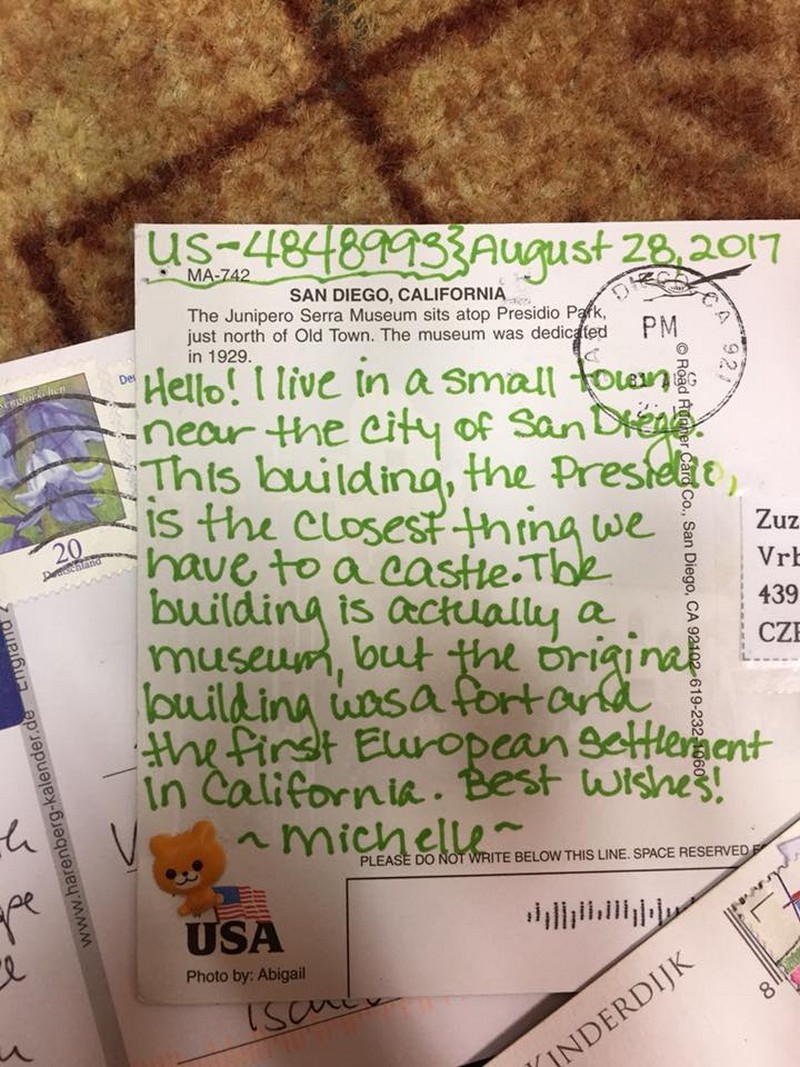 US-4848993}August 28, 2017
MA-742
SAN DIEGO, CALIFORNIA
The Junipero Serra Museum sits atop Presidio Park,
just north of Old Town. The museum was dedicated
in 1929.
DIEGO CA 921
PM
© Road Runner Card Co., San Diego, CA 92102 619-232-1060
Hello! I live in a small town
near the city of San Diego.
This building, the Presidio,
is the closest thing we
have to a castle. The
building is actually a
museum, but the original
building was a fort and
the first European settlement
in California. Best Wishes!
~Michelle~
PLEASE DO NOT WRITE BELOW THIS LINE. SPACE RESERVED
USA
Photo by: Abigail
20
Deutschland
England
www.harenberg-kalender.de
Zuz
Vrb
439
CZE
KINDERDIJK
8